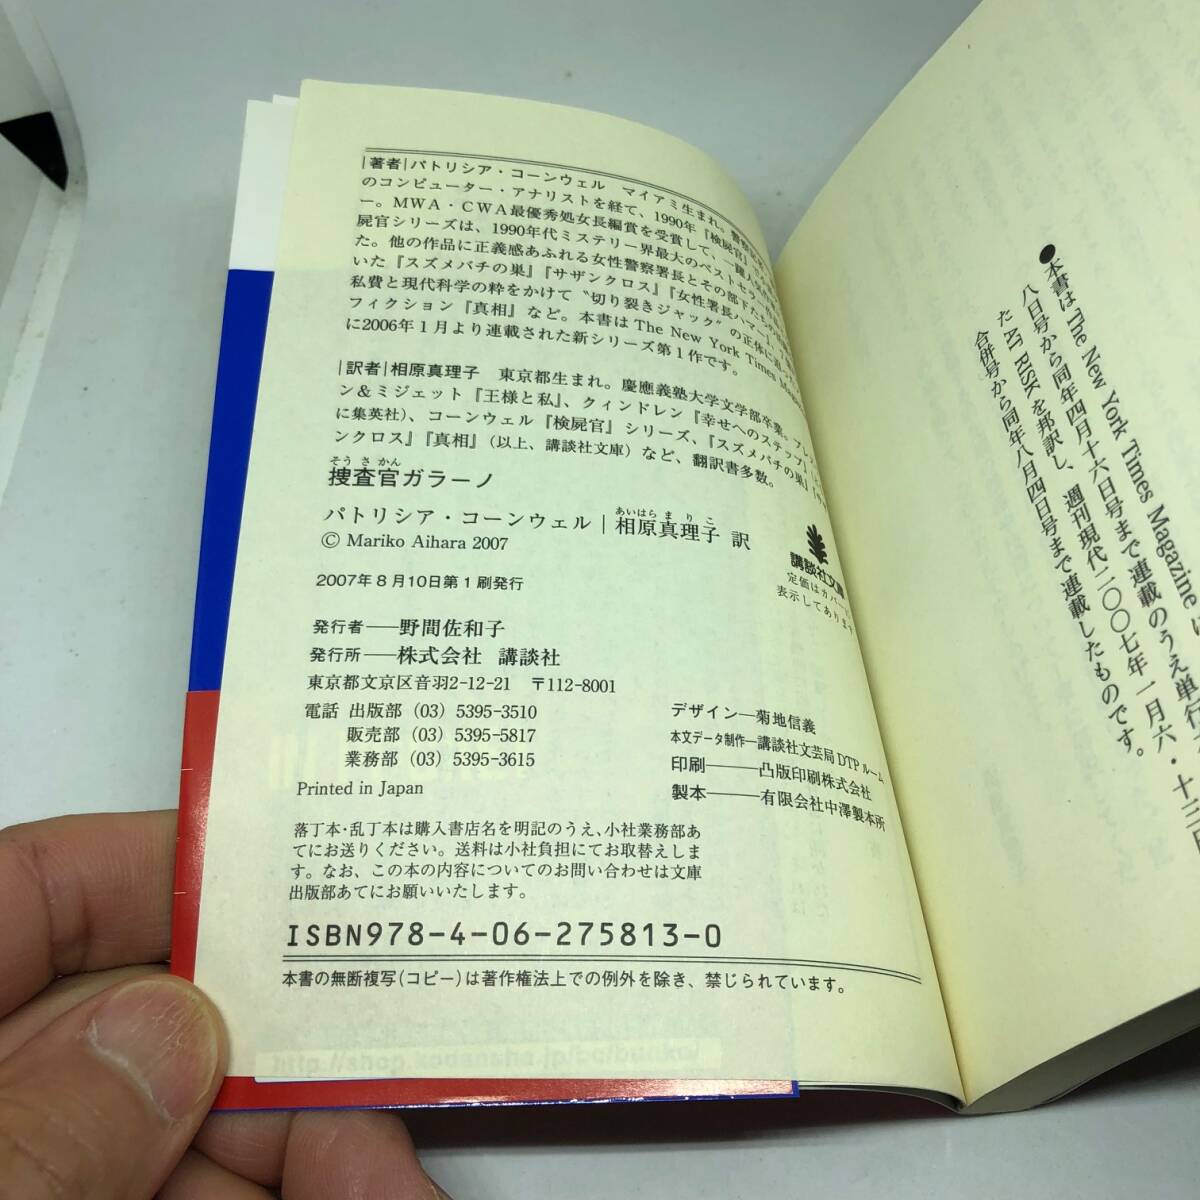 |著者|パトリシア・コーンウェル　マイアミ生まれ。警察
のコンピューター・アナリストを経て、1990年『検屍官』
ー。MWA・CWA最優秀処女長編賞を受賞して、一躍人気
屍官シリーズは、1990年代ミステリー界最大のベストセラー
た。他の作品に正義感あふれる女性警察署長とその部下たち
いた『スズメバチの巣』『サザンクロス』『女性署長ハマー』、
私費と現代科学の粋をかけて“切り裂きジャック”の正体に迫
フィクション『真相』など。本書はThe New York Times
に2006年1月より連載された新シリーズ第1作です。
|訳者|相原真理子　東京都生まれ。慶應義塾大学文学部卒業。
ン＆ミジェット『王様と私』、クィンドレン『幸せへのステップ』
に集英社）、コーンウェル『検屍官』シリーズ、『スズメバチの巣』
ンクロス』『真相』（以上、講談社文庫）など、翻訳書多数。
そうさかん
捜査官ガラーノ
あいはらまりこ
パトリシア・コーンウェル|相原真理子 訳
© Mariko Aihara 2007
2007年8月10日第1刷発行
講談社文庫
定価はカバーに
表示してあります
発行者——野間佐和子
発行所——株式会社 講談社
東京都文京区音羽2-12-21　〒112-8001
電話 出版部 (03) 5395-3510
販売部 (03) 5395-5817
業務部 (03) 5395-3615
Printed in Japan
デザイン—菊地信義
本文データ制作—講談社文芸局DTPルーム
印刷———凸版印刷株式会社
製本———有限会社中澤製本所
落丁本・乱丁本は購入書店名を明記のうえ、小社業務部あ
てにお送りください。送料は小社負担にてお取替えしま
す。なお、この本の内容についてのお問い合わせは文庫
出版部あてにお願いいたします。
ISBN978-4-06-275813-0
本書の無断複写（コピー）は著作権法上での例外を除き、禁じられています。
http://shop.kodansha.jp/bc/bunko/
●本書はThe New York Times Magazine
八日号から同年四月十六日号まで連載のうえ単行
た AT RISK を邦訳し、週刊現代二〇〇七年一月六・十三日
合併号から同年八月四日号まで連載したものです。